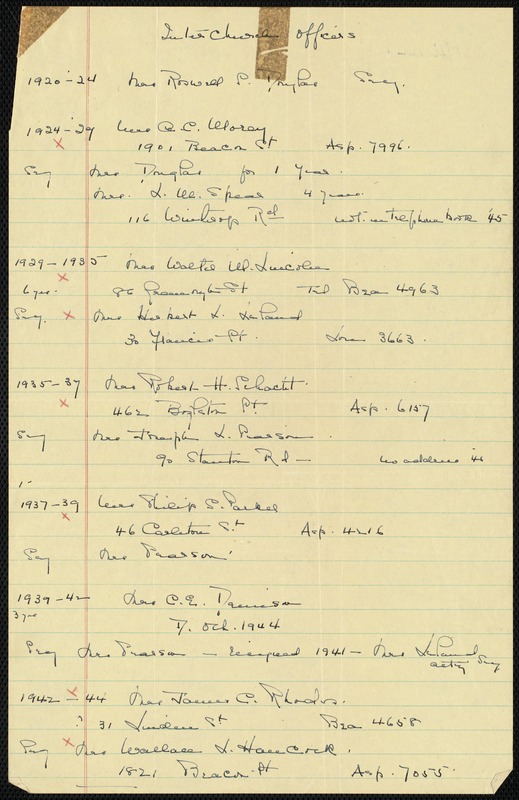 InterChurch Officers
1920-24 Mrs Roswell P. Douglas Secy.
1924-29 Mrs C. C. Morey
x 1901 Beacon St Asp. 7996.
Secy Mrs Douglas for 1 year.
Mrs. L. M. Spear 4 years
116 Winthrop Rd not in telephone book '45
1929-1935 Mrs Walter M. Lincoln
x
6 yrs. 86 St Tel Bea 4963
Secy. x Mrs Herbert L. Leland
30 Francis St. Lon 3663.
1935-37 Mrs Robert H. Schacht
x 462 Boylston St Asp. 6157
Secy Mrs Joseph L. Pearson.
90 Stanton Rd — no address 41
1937-39 Mrs Philip S. Parker
x 46 Carlton St Asp. 4216
Secy Mrs Pearson
1939-42 Mrs C. E.
3 yrs D. Oct. 1944
Secy Mrs Pearson — resigned 1941 — Mrs Leland
acting Secy
1942-44 Mrs James C. Rhodes.
x
? 31 Linden St Bea 4658
Secy x Mrs Wallace L. Hancock.
1821 Beacon St Asp. 7055.